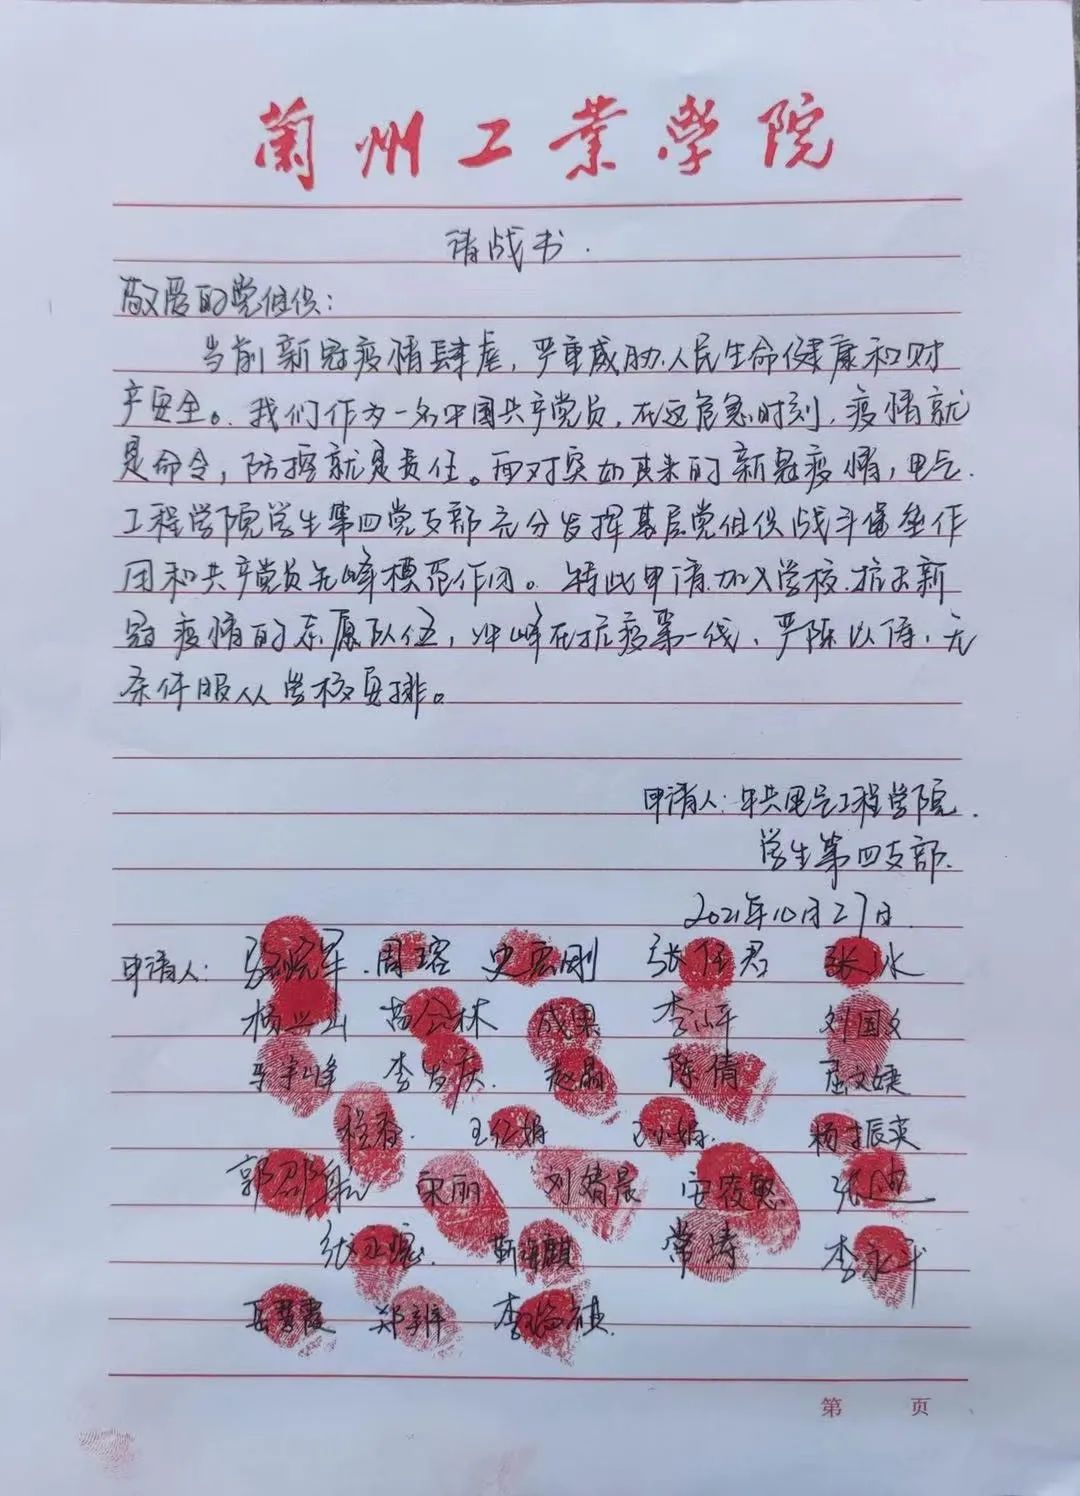 兰州工业学院
请战书.
敬爱的党组织:
当前新冠疫情肆虐,严重威胁人民生命健康和财
产安全。我们作为一名中国共产党员,在这危急时刻,疫情就
是命令,防控就是责任。面对突如其来的新冠疫情,电气
工程学院学生第四党支部充分发挥基层党组织战斗堡垒作
用和共产党员先锋模范作用。特此申请加入学校抗击新
冠疫情的志愿队伍,冲峰在抗疫第一线、严陈以待,无
条件服从学校安排。
申请人:中共电气工程学院
学生第四支部.
2021年10月27日
申请人: 周瑢 史宏刚 张任君 张冰
杨兴山 苗会林 成果 李小平 刘国文
马宇峰 李发庆 赵晶 陈倩 屈文婕
程香 王红娟 杨振英
郭邵航 宋丽 刘婧晨 安俊熙 张迪
靳海麒 常涛 李永斗
岳慧霞 郑辨 李海祺
第 页